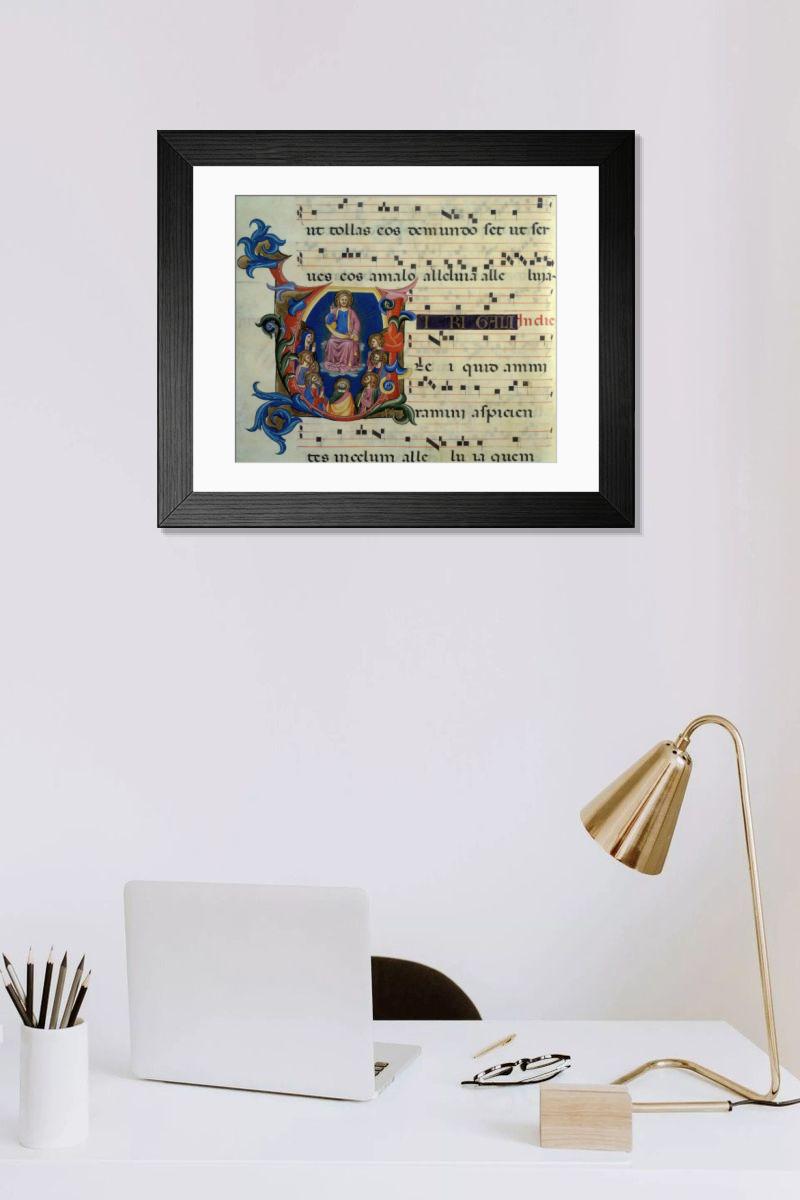 ut tollas eos demundo set ut ser
ues eos amalo alleluia alle luia
In die
i quid ammi
ramini aspicien
tes incelum alle lu ia quem